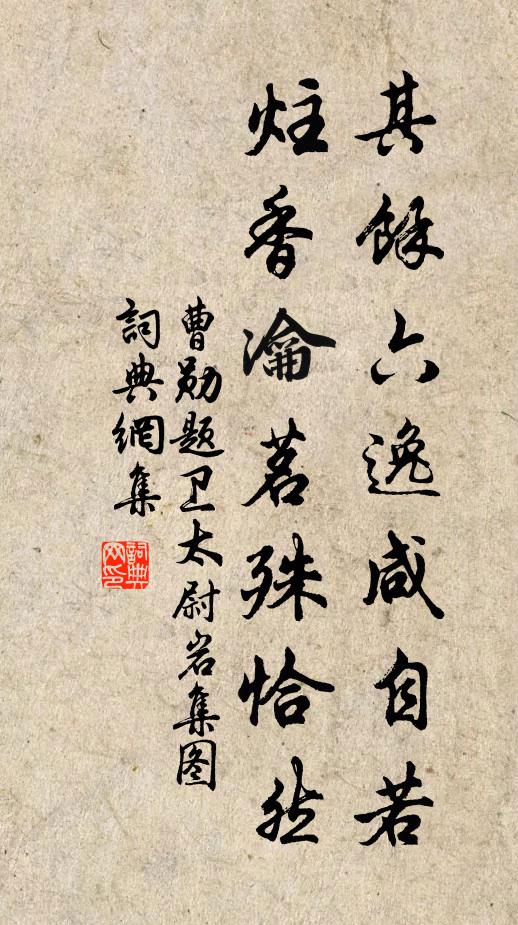 其餘六逸咸自若
炷香瀹茗殊恰然
曹勛题卫太尉岩集图
詞典網集
詞典网印